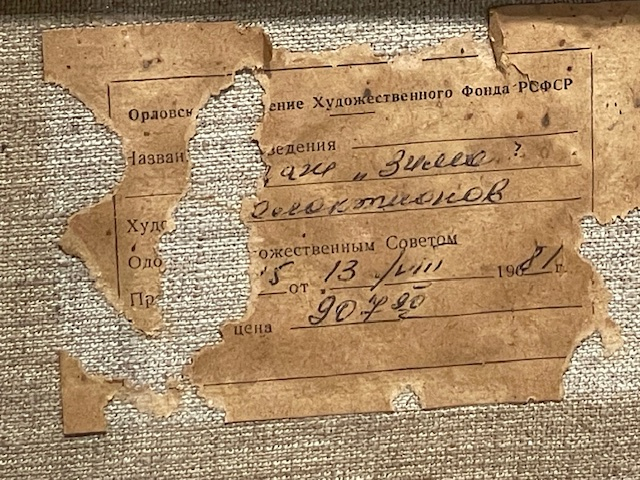 Орловск ение Художественного Фонда РСФСР
Назван ведения
аж „Зима"
Худо локтионов
Одо ожественным Советом
Пр 5 от 13/VIII 1981 г.
цена 90.7